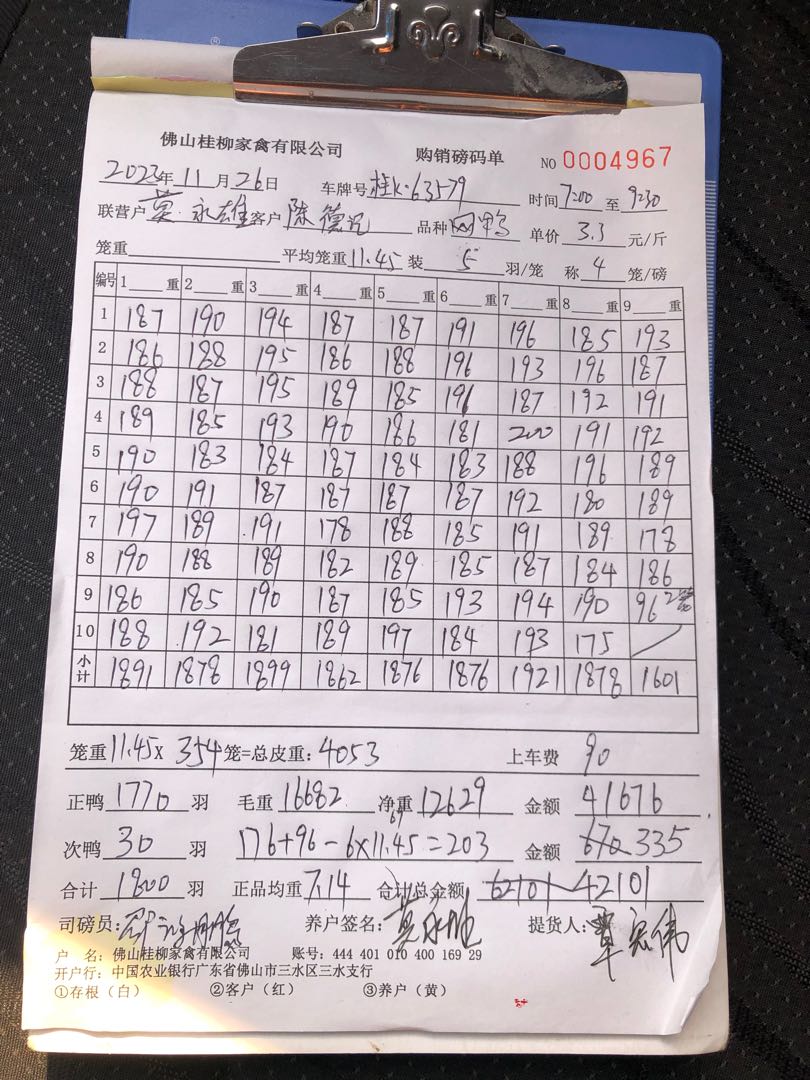 佛山桂柳家禽有限公司 购销磅码单 NO 0004967
2023年11月26日 车牌号桂K·63579 时间7:00至9:30
联营户莫永雄客户陈德 品种 单价3.3元/斤
笼重 平均笼重11.45装5羽/笼 称4笼/磅
编号 1 重 2 重 3 重 4 重 5 重 6 重 7 重 8 重 9 重
1 187 190 194 187 187 191 196 185 193
2 186 188 195 186 188 196 193 196 187
3 188 187 195 189 185 191 187 192 191
4 189 185 193 190 186 181 200 191 192
5 190 183 184 187 184 183 188 196 189
6 190 191 187 187 187 187 192 180 189
7 197 189 191 178 188 185 191 189 178
8 190 188 189 182 189 185 187 184 186
9 186 185 190 187 185 193 194 190 96 2
10 188 192 181 189 197 184 193 175
小计 1891 1878 1899 1862 1876 1876 1921 1878 1601
笼重11.45X 354笼=总皮重:4053 上车费90
正鸭1770羽 毛重16682 净重12629 金额41676
次鸭30羽 176+96-6X11.45=203 金额670 335
69
合计1800羽 正品均重7.14 合计总金额62101 42101
司磅员: 养户签名:莫永雄 提货人:覃宏伟
户 名:佛山桂柳家禽有限公司 账号:444 401 010 400 169 29
开户行:中国农业银行广东省佛山市三水区三水支行
①存根(白) ②客户(红) ③养户(黄)